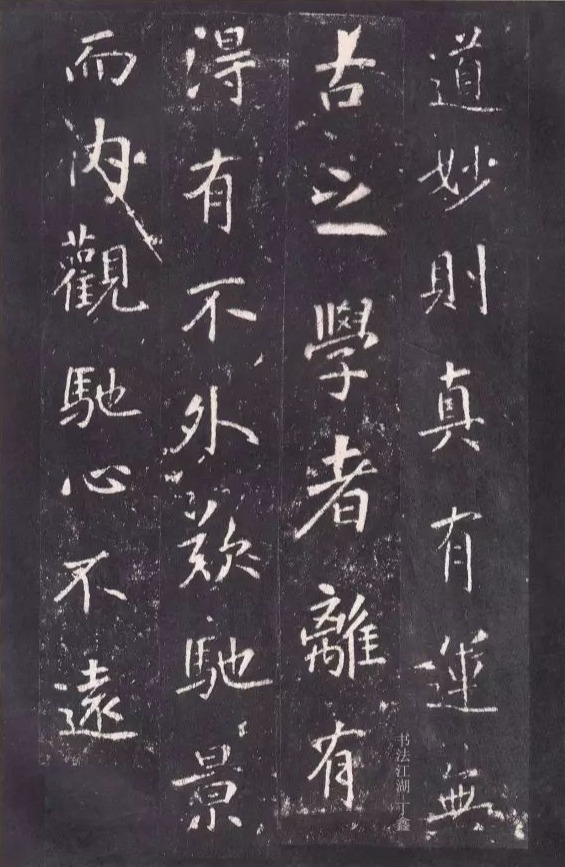 道妙則真有運無
古之學者離有
得有不外歎馳景
而内觀馳心不遠
书法江湖丁鑫